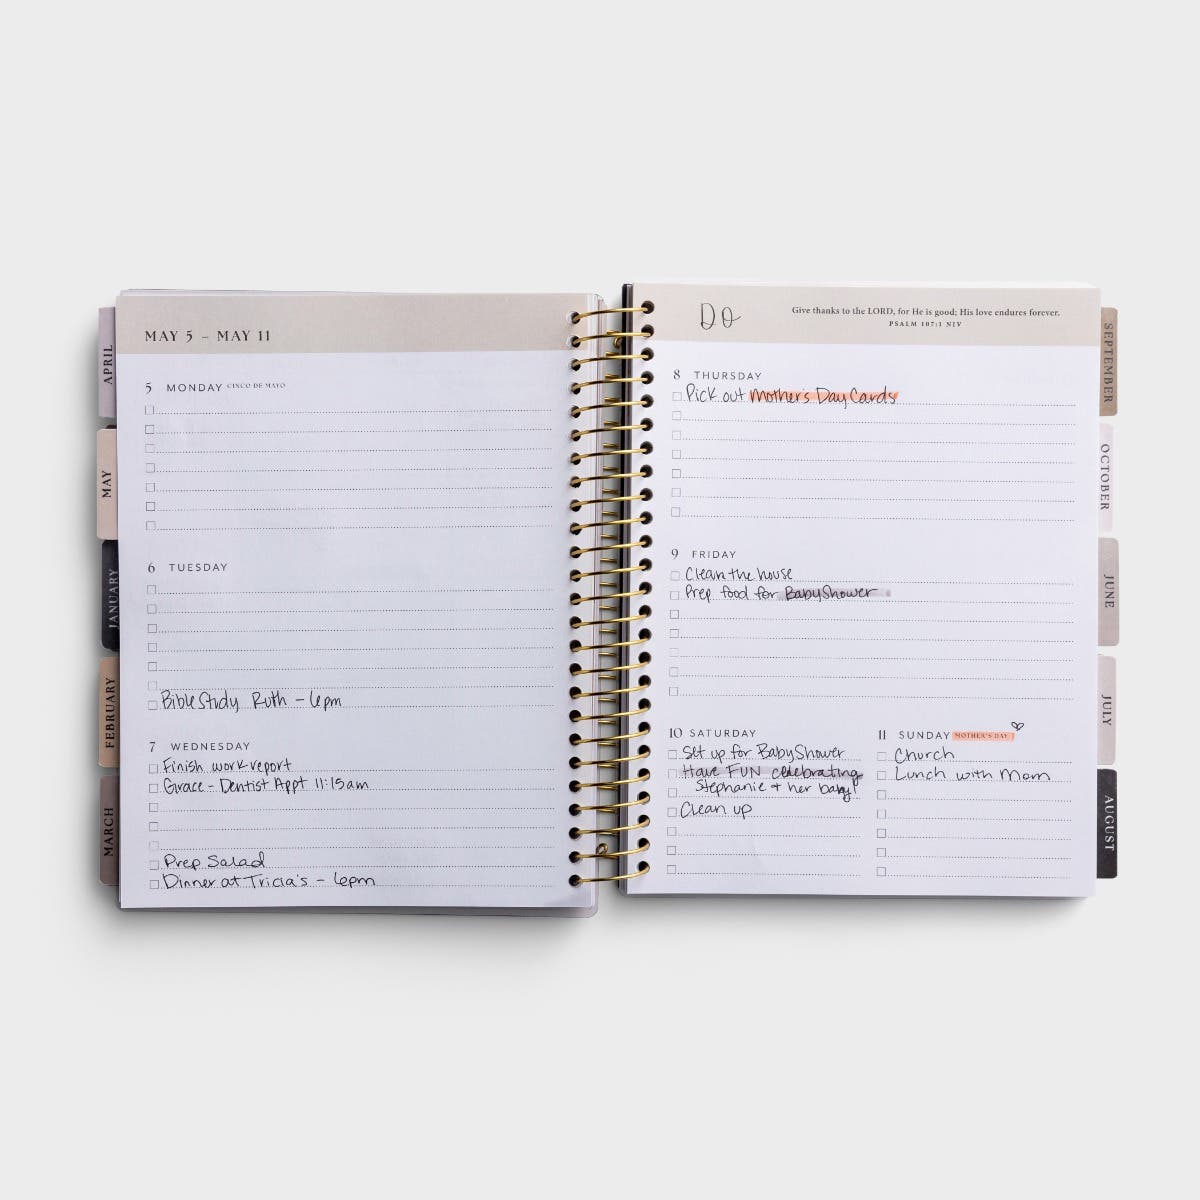 MAY 5 – MAY 11
5 MONDAY CINCO DE MAYO
6 TUESDAY
Bible Study Ruth – 6pm
7 WEDNESDAY
Finish work report
Grace - Dentist Appt 11:15am
Prep Salad
Dinner at Tricia's – 6pm
DO
Give thanks to the LORD, for He is good; His love endures forever.
PSALM 107:1 NIV
8 THURSDAY
Pick out Mother's Day Cards
9 FRIDAY
Clean the house
Prep food for Baby Shower
10 SATURDAY
Set up for Baby Shower
Have FUN celebrating
Stephanie + her baby!
Clean up
11 SUNDAY MOTHER'S DAY
Church
Lunch with Mom
APRIL
MAY
JANUARY
FEBRUARY
MARCH
SEPTEMBER
OCTOBER
JUNE
JULY
AUGUST